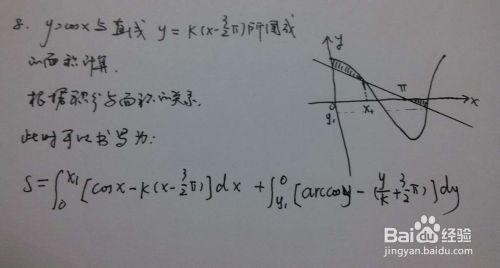 8. y=cosx与直线 y = k(x-3/2π)所围成
的面积计算.
根据积分与面积的关系.
此时可以书写为:
S=∫₀^{x₁}[cosx-k(x-3/2π)]dx + ∫_{y₁}^{0}[arccosy-(y/k+3/2π)]dy
y
π
0
x₁
x
y₁
Baidu经验
jingyan.baidu.com